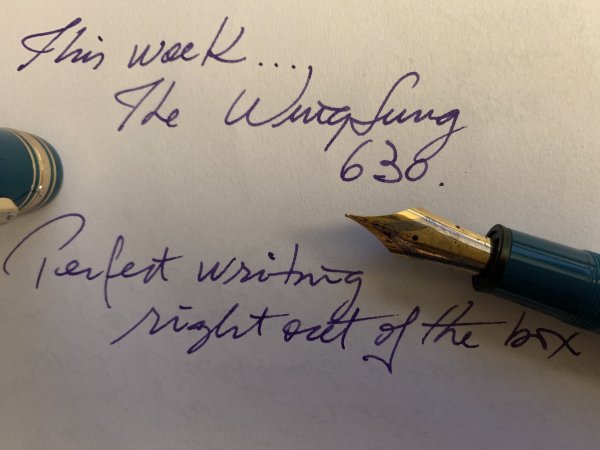 This week....,
The WingSung
630.
Perfect writing
right out of the box